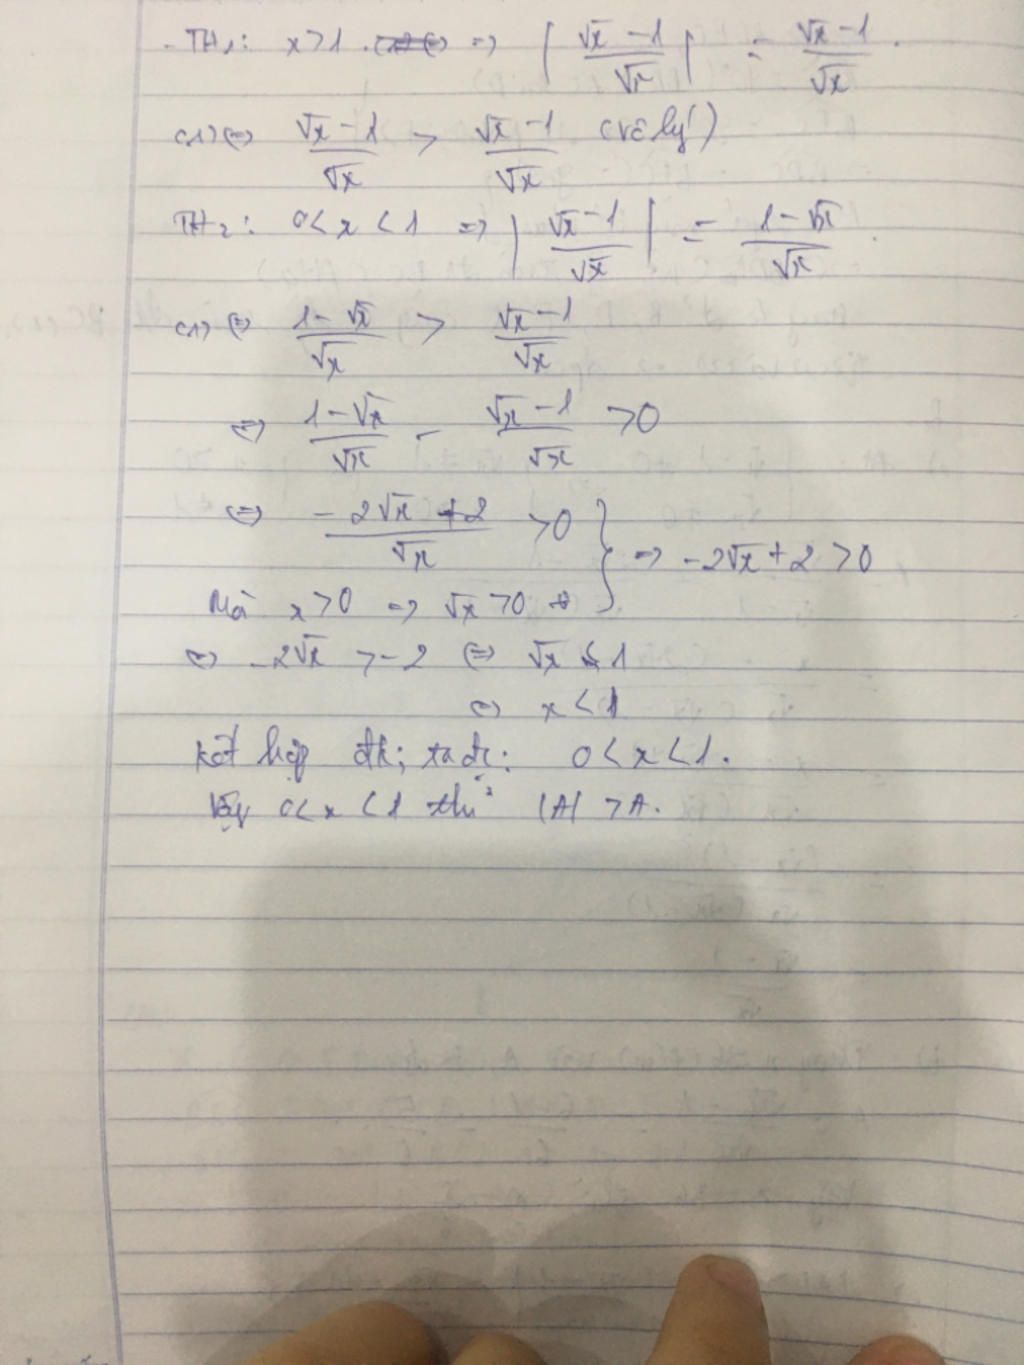 - TH₁: x > 1 => | (√x - 1)/√x | = (√x - 1)/√x .
(1) <=> (√x - 1)/√x > (√x - 1)/√x (vô lý)
TH₂: 0 < x < 1 => | (√x - 1)/√x | = (1 - √x)/√x .
(1) <=> (1 - √x)/√x > (√x - 1)/√x
<=> (1 - √x)/√x - (√x - 1)/√x > 0
<=> (-2√x + 2)/√x > 0 } => -2√x + 2 > 0
Mà x > 0 => √x > 0
<=> -2√x > -2 <=> √x < 1
<=> x < 1
Kết hợp đk; ta đc: 0 < x < 1.
Vậy 0 < x < 1 thì |A| > A.